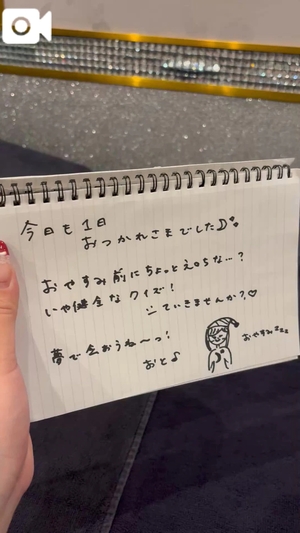 今日も1日
おつかれさまでした☽
おやすみ前にちょっとえ〇ちな…?
いや健全なクイズ!
していきませんか?♡
夢で会おうね〜っ!
おと♪
おやすみzzz